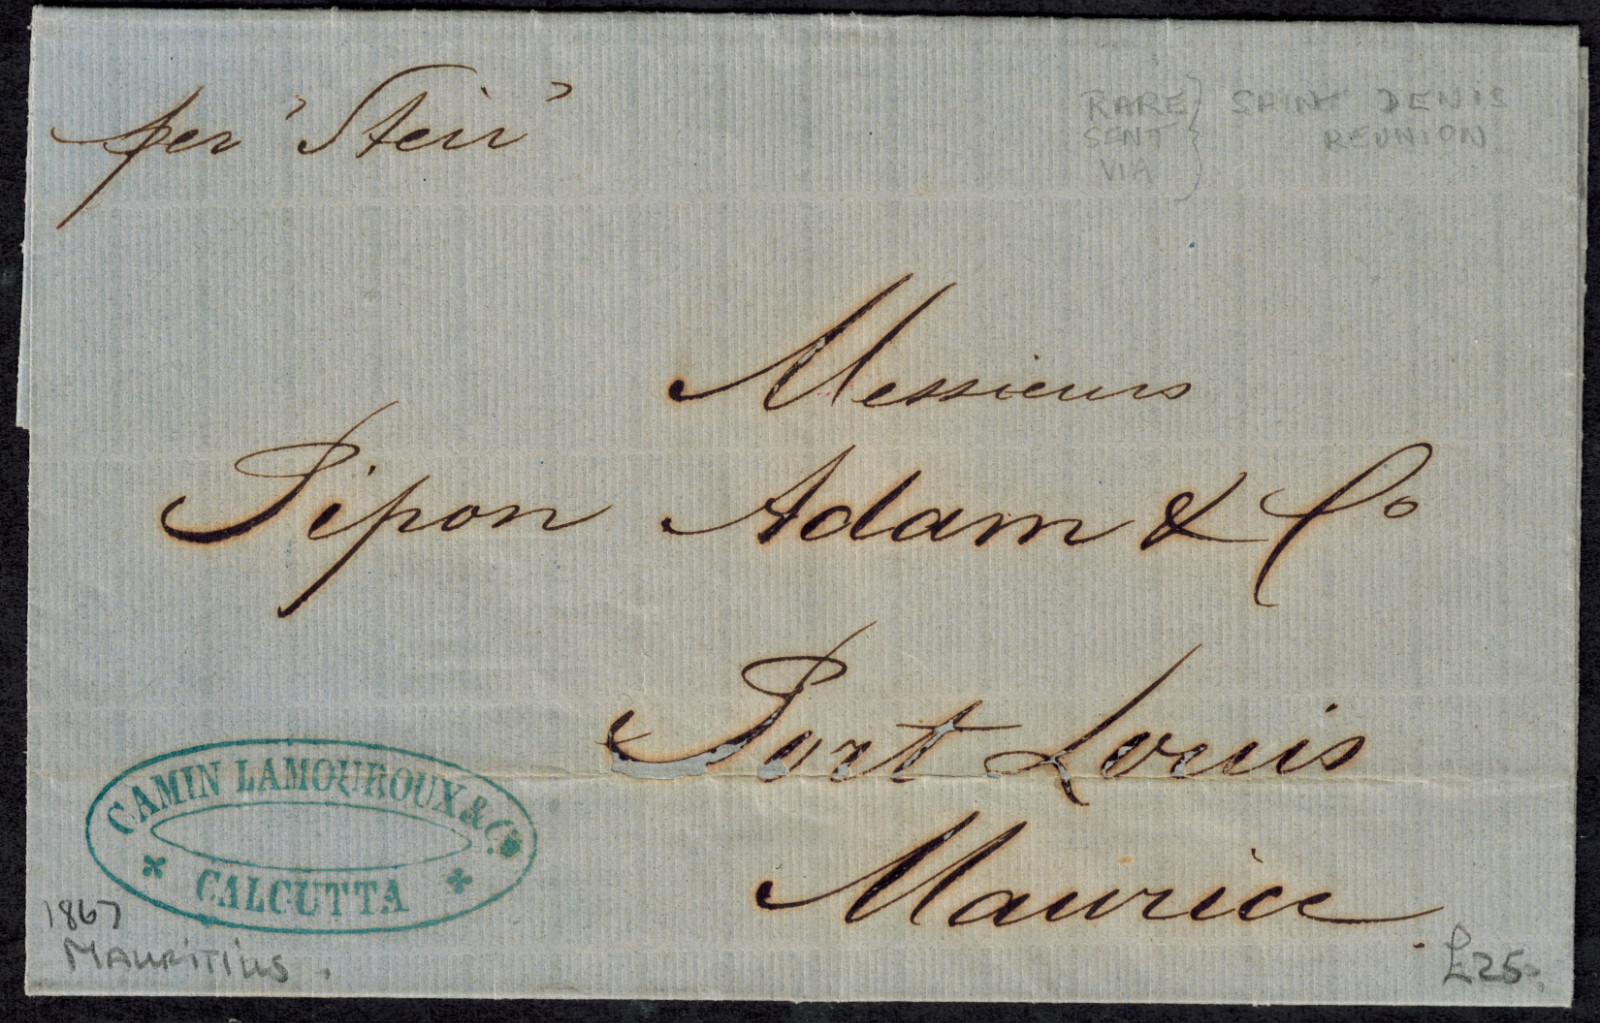 per "Steir"
RARE SENT VIA } SAINT DENIS REUNION
Messieurs
Pipon Adam & Co
Port Louis
Maurice
CAMIN LAMOUROUX & Co.
CALCUTTA
1867
MAURITIUS.
£25-